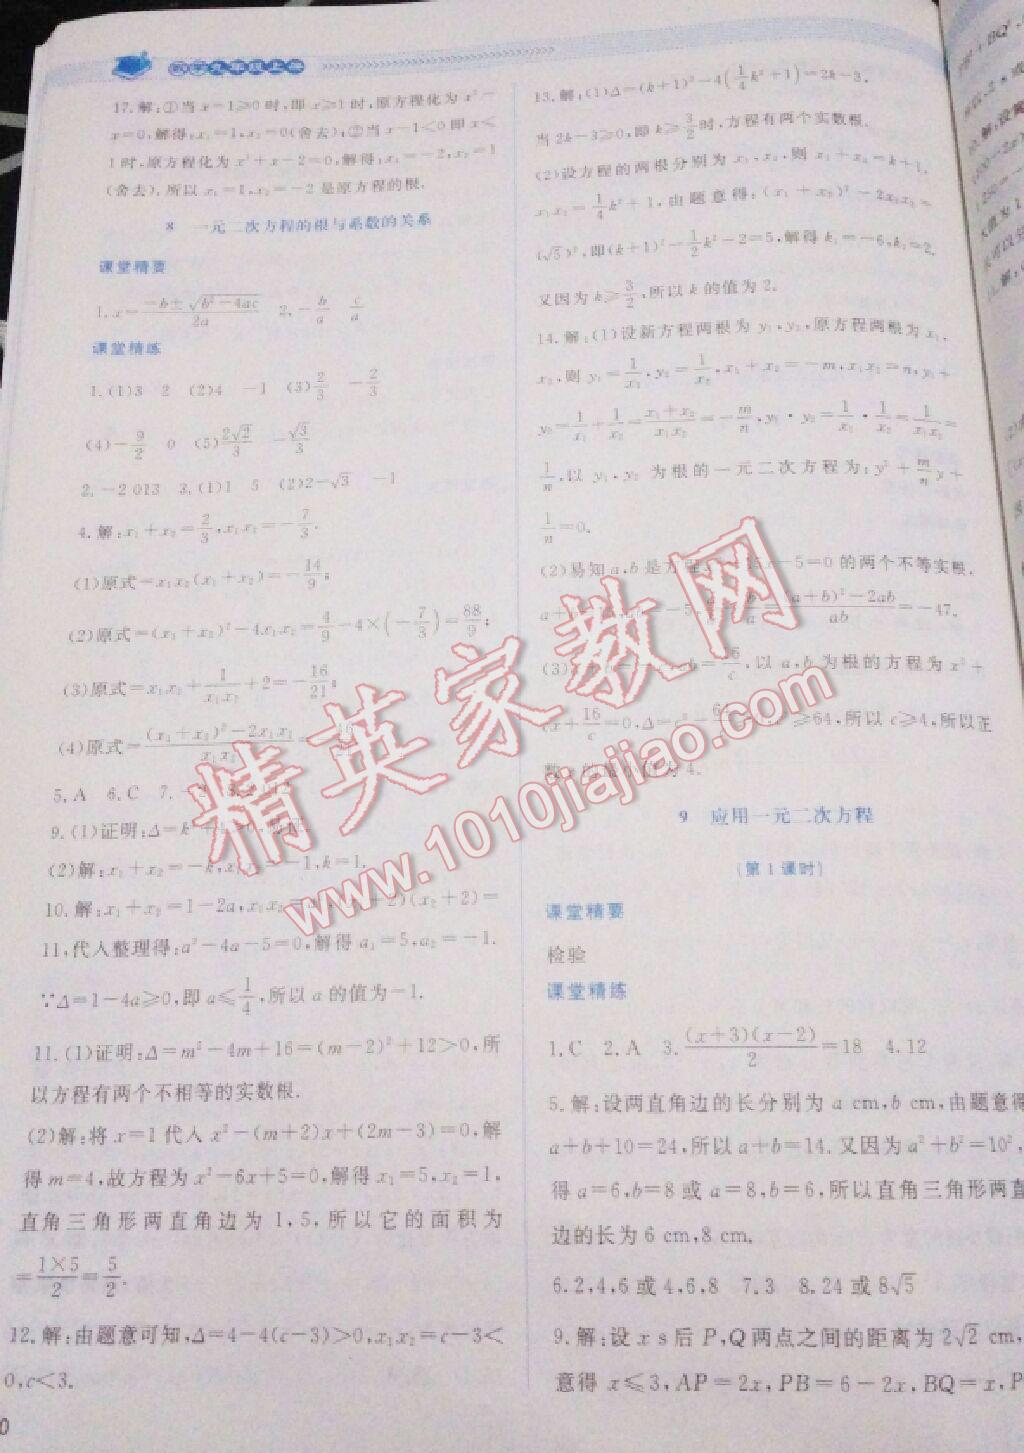 数学九年级上册
17.解:①当x-1≥0时,即x≥1时,原方程化为x²-
x=0,解得:x₁=1,x₂=0(舍去);②当x-1<0即x<
1时,原方程化为x²+x-2=0,解得:x₁=-2,x₂=1
(舍去).所以x₁=1,x₂=-2是原方程的根.
8 一元二次方程的根与系数的关系
课堂精要
1.x=(-b±√(b²-4ac))/2a 2.-b/a c/a
课堂精练
1.(1)3 2 (2)4 -1 (3)2/3 -2/3
(4)-9/2 0 (5)2√2/3 -√3/3
2.-2 013 3.(1)1 5 (2)2-√3 -1
4.解:x₁+x₂=2/3,x₁x₂=-7/3.
(1)原式=x₁x₂(x₁+x₂)=-14/9;
(2)原式=(x₁+x₂)²-4x₁x₂=4/9-4×(-7/3)=88/9;
(3)原式=x₁x₂+1/(x₁x₂)+2=-16/21;
(4)原式=((x₁+x₂)²-2x₁x₂)/(x₁x₂)=
5.A 6.C 7.-2 8.2 012
9.(1)证明:Δ=k²+4>0,
(2)解:x₁+x₂=-k,x₁x₂=-1,k=1.
10.解:x₁+x₂=1-2a,x₁x₂=a²,(x₁+2)(x₂+2)=
11,代入整理得:a²-4a-5=0,解得a₁=5,a₂=-1.
∵Δ=1-4a≥0,即a≤1/4,所以a的值为-1.
11.(1)证明:Δ=m²-4m+16=(m-2)²+12>0,所
以方程有两个不相等的实数根.
(2)解:将x=1代入x²-(m+2)x+(2m-3)=0,解
得m=4,故方程为x²-6x+5=0,解得x₁=5,x₂=1,
直角三角形两直角边为1,5,所以它的面积为
=(1×5)/2=5/2.
12.解:由题意可知,Δ=4-4(c-3)>0,x₁x₂=c-3<
0,c<3.
13.解:(1)Δ=(k+1)²-4(1/4k²+1)=2k-3.
当2k-3≥0,即k≥3/2时,方程有两个实数根.
(2)设方程的两根分别为x₁,x₂,则x₁+x₂=k+1,
x₁x₂=1/4k²+1,由题意得,(x₁+x₂)²-2x₁x₂=
(√5)²,即(k+1)²-1/2k²-2=5,解得k₁=-6,k₂=2.
又因为k≥3/2,所以k的值为2.
14.解:(1)设新方程两根为y₁,y₂,原方程两根为x₁,
x₂,则y₁=1/x₁,y₂=1/x₂,x₁+x₂=-m,x₁x₂=n,y₁+
y₂=1/x₁+1/x₂=(x₁+x₂)/(x₁x₂)=-m/n,y₁·y₂=1/x₁·1/x₂=1/(x₁x₂)=
1/n,以y₁,y₂为根的一元二次方程为:y²+m/n y+
1/n=0.
(2)易知a,b是方程x²-15x-5=0的两个不等实根.
=((a+b)²-2ab)/ab=-47.
(3) =16/c,以a,b为根的方程为x²+
cx+16/c=0,Δ=c²- ≥64,所以c≥4,所以正
数c的最小值为4.
9 应用一元二次方程
(第1课时)
课堂精要
检验
课堂精练
1.C 2.A 3.(x+3)(x-2)/2=18 4.12
5.解:设两直角边的长分别为a cm,b cm,由题意得
a+b+10=24,所以a+b=14.又因为a²+b²=10²,
得a=6,b=8或a=8,b=6,所以直角三角形两直
边的长为6 cm,8 cm.
6.2,4,6或4,6,8 7.3 8.24或8√5
9.解:设x s后P,Q两点之间的距离为2√2 cm,
意得x≤3,AP=2x,PB=6-2x,BQ=x,P
精英家教网
www.1010jiajiao.com